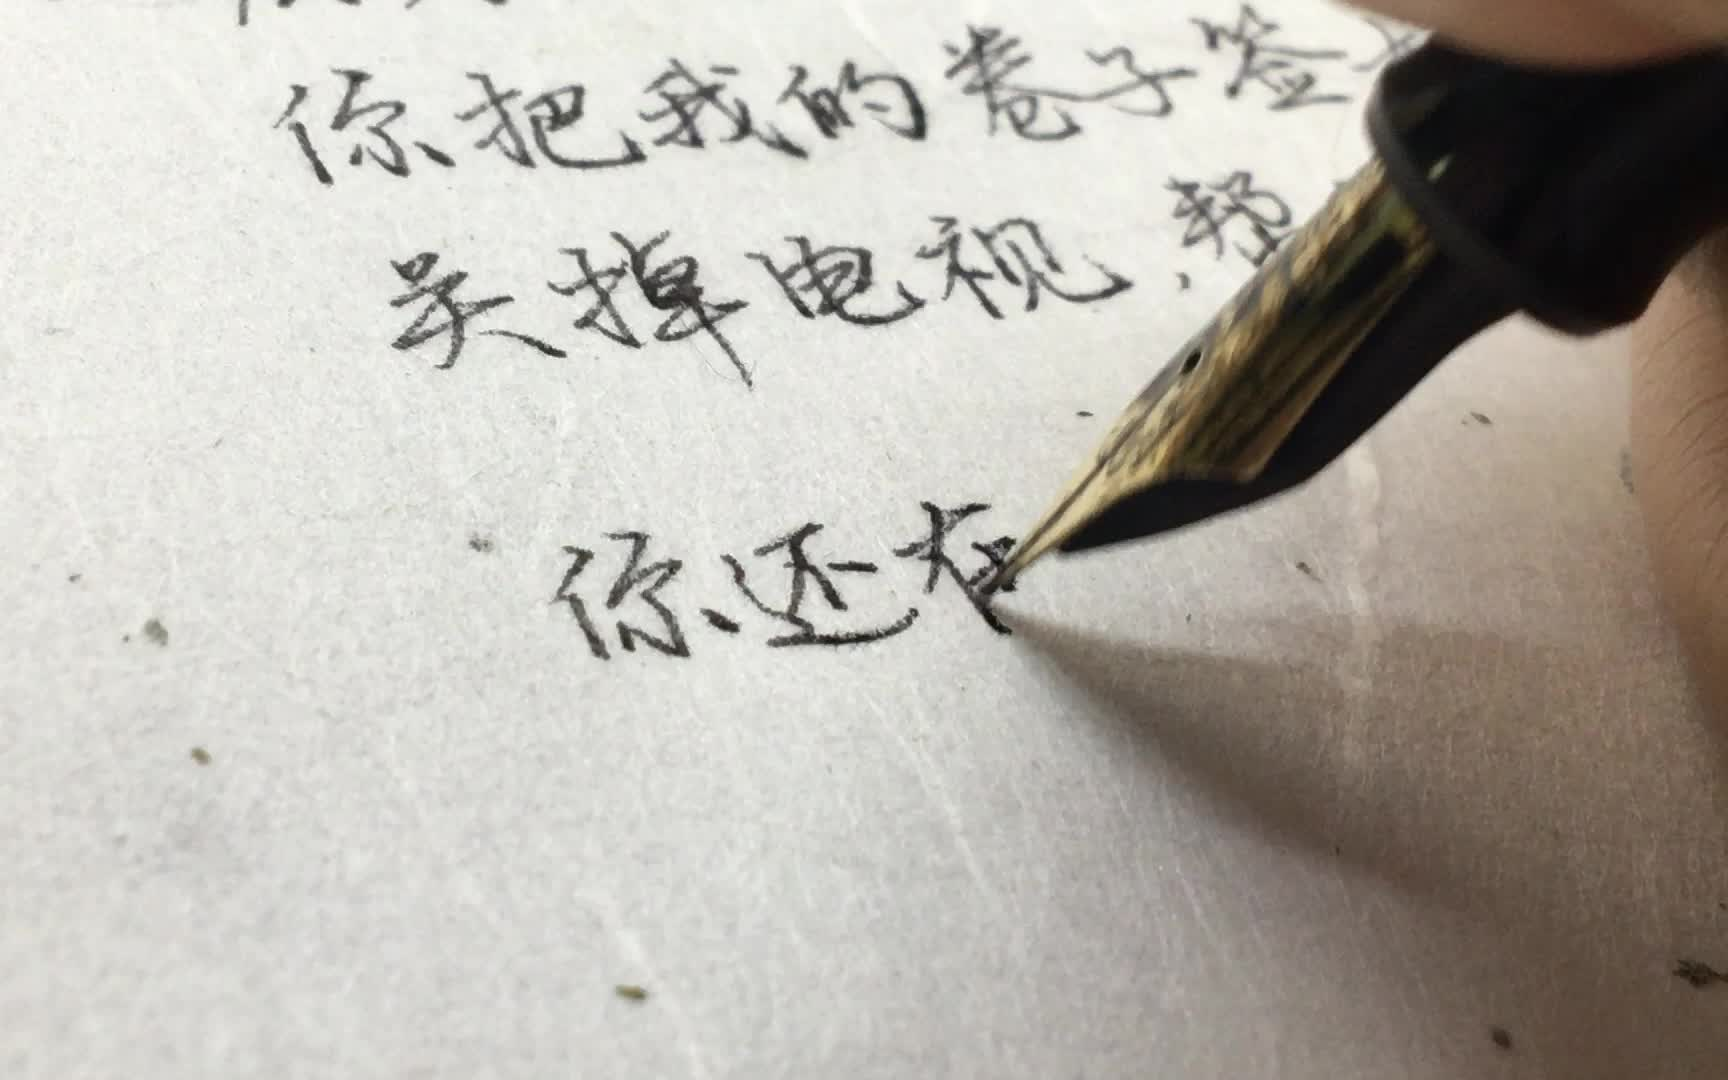 你把我的卷子签
关掉电视，帮
你还